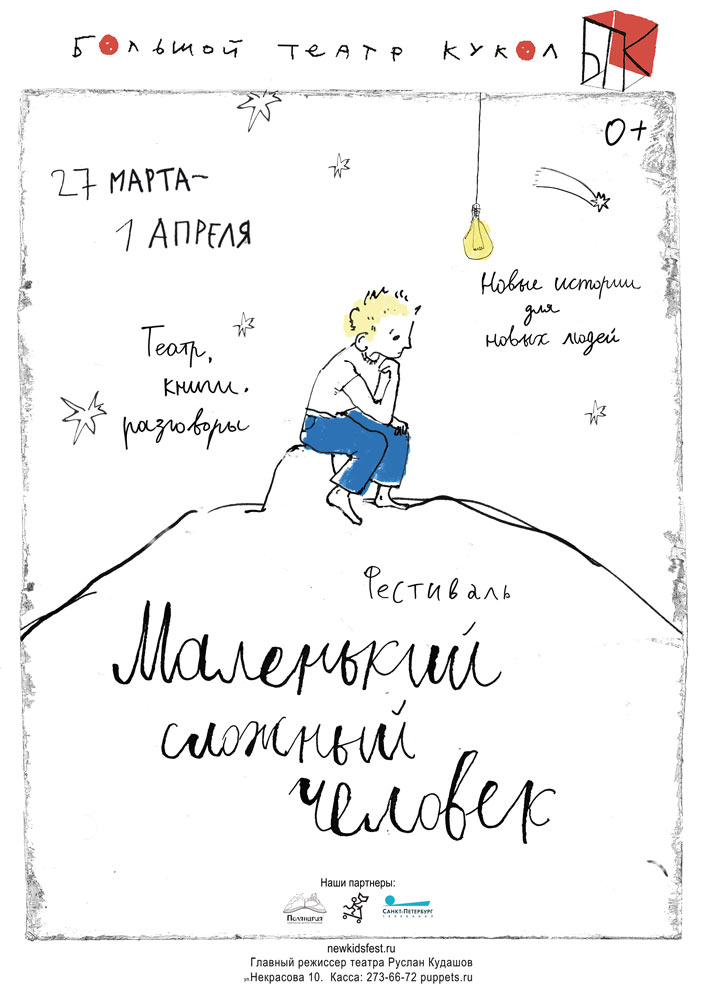 БОЛЬШОЙ ТЕАТР КУКОЛ
БТК
0+
27 МАРТА–
1 АПРЕЛЯ
Новые истории
для
новых людей
Театр,
книги.
разговоры
Фестиваль
Маленький
сложный
человек
Наши партнеры:
Поляндрия
САНКТ-ПЕТЕРБУРГ
ТЕЛЕКАНАЛ
newkidsfest.ru
Главный режиссер театра Руслан Кудашов
ул.Некрасова 10. Касса: 273-66-72 puppets.ru